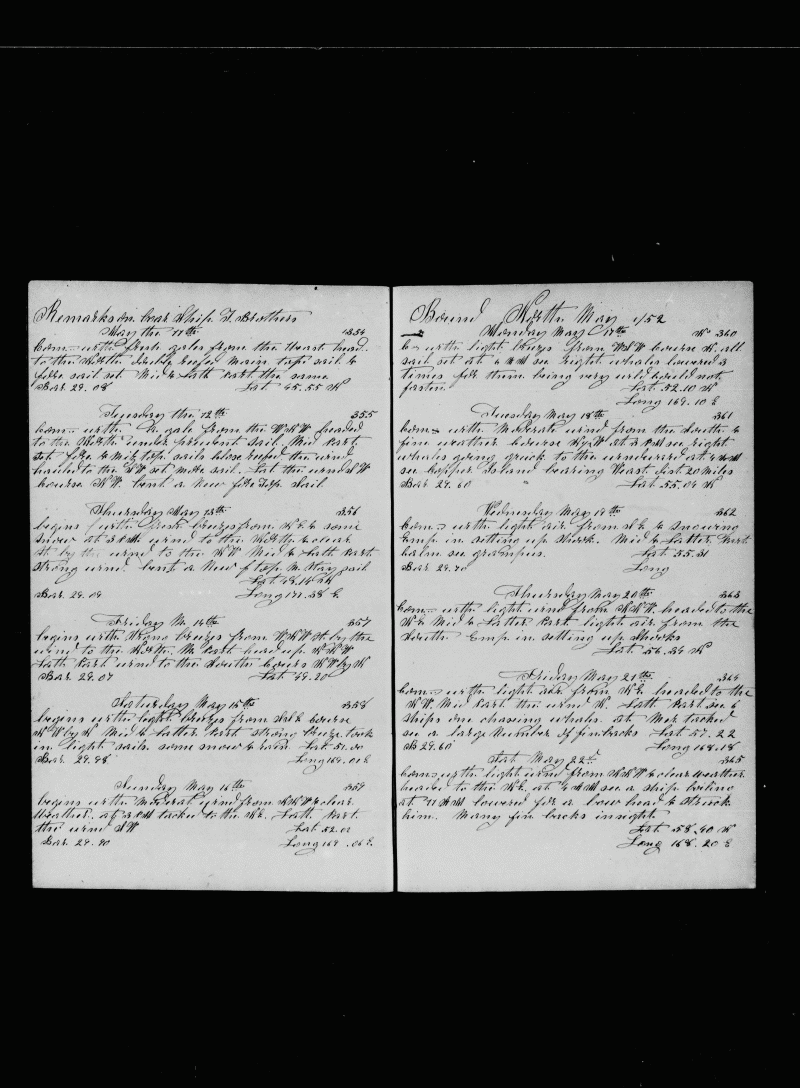 Remarks on boar Ship F. Brothers
May the 11th 354
Com- with fresh gales from the West head.
to the North double reefed main top sail &
fore sail set Mid & Lath Part the same
Bar. 29.08 Lat 45.55 N
Teusday the 12th 355
Com- with gale from the WNW headed
to the North under prudent sail. Mid Part
set fore & miz top sails close reefed the wind
hauled to the SW set more sail. Lat the wind SW
course NW bent a New fore top Sail
Thursday May 13th 356
begins with fresh breezes from SE & some
Snow at 3 PM wind to the North & clear
by the wind to the NW Mid & Latt Part
strong wind. bent a New f top M. Stay sail
Lat 48.14 N
Bar. 29.09 Long 171.38 E.
Friday M. 14th 357
begins with Strong breezes from WNW by the
wind to the North. M. Part head up NNW
Lath Part wind to the South cours NW by N
Bar. 29.07 Lat 49.20
Saturday May 15th 358
begins with light breezes from course
NW by N Mid & Latter Part strong breeze. took
in light sails some snow & rain Lat 51.00
Bar. 29.98 Long 169.01 E
Sunday May 16th 359
begins with Moderat wind from NNW & clear
Weather. at 3 PM tacked to the NE. Lath Part.
the wind SW Lat 52.02
Bar. 29.90 Long 169.06 E.
Bound North May 1/52
Monday May 17th N 360
C- with light breeze from WSW course N. all
sail set at 4 AM see right whales lowered 3
times for them being very wild could not
fasten Lat 52.10 N
Long 169.10 E
Tuesday May 18th 361
Com- with Moderate wind from the South &
fine weather course N by W at 3 PM see right
whales going quick to the windward at 4 AM
see Copper Island bearing West. dist 20 Miles
Bar 29.60 " Lat 55.04 N
Wednesday May 19th 362
Com- with light air from SE & Snowing
Emp in setting up Shook. Mid & Latter Part
Calm see grampus. Lat 55.31
Bar 29.70 Long
Thursday May 20th 363
Com- with light wind from NNW. headed to the
NE Mid & Latter Part light air from the
South Emp in setting up Shooks
Lat 56.34 N
Friday May 21th 364
Com- with light air from NE headed to the
NW. Mid Part the wind N. Latt Part see 6
ships one chasing whales. at Mer tacked
see a large Number of finbacks Lat 57.22
B 29.60 Long 168.18
Sat May 22d 365
Com- with light wind from NNW & clear weather
headed to the NE. at 4 AM see a ship boiling
at 11 AM lowered for a bow head & Struck
him. Many fin backs in sight
Lat 58.40 N
Long 168.20 E